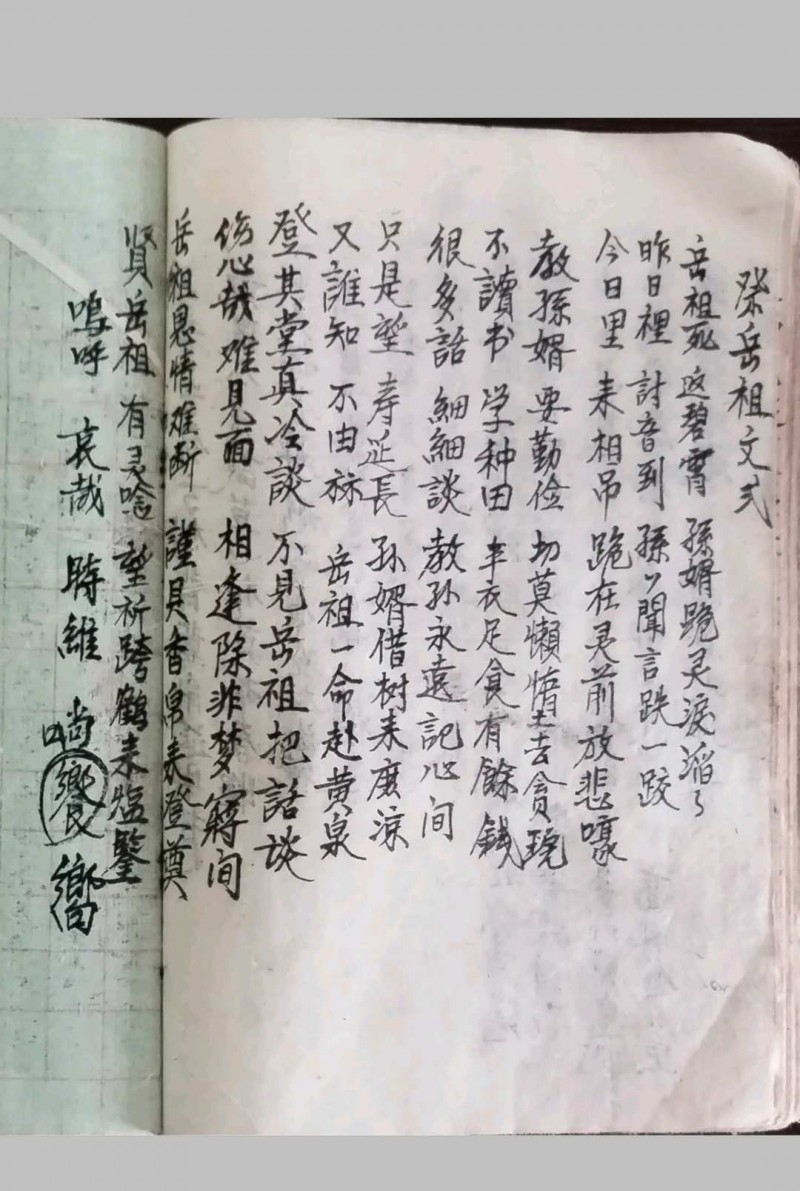 祭岳祖文式
岳祖死 返碧霄 孫婿跪灵淚滔々
昨日裡 討音到 孫々聞言跌一跤
今日里 来相吊 跪在灵前放悲嚎
教孫婿 要勤俭 切莫懒惰去貪玩
不讀书 学种田 丰衣足食有餘銭
很多話 細細談 教孙永遠記心间
只是望 寿延長 孙婿借树来蔭涼
又誰知 不由 岳祖一命赴黄泉
登其堂真冷談 不見岳祖把話谈
伤心哉难見面 相逢除非梦寤间
岳祖恩情难断 謹具香帛来登奠
賢岳祖 有灵唸 望祈跨鶴来 鑒
嗚呼 哀哉 時維 尚饗 嚮